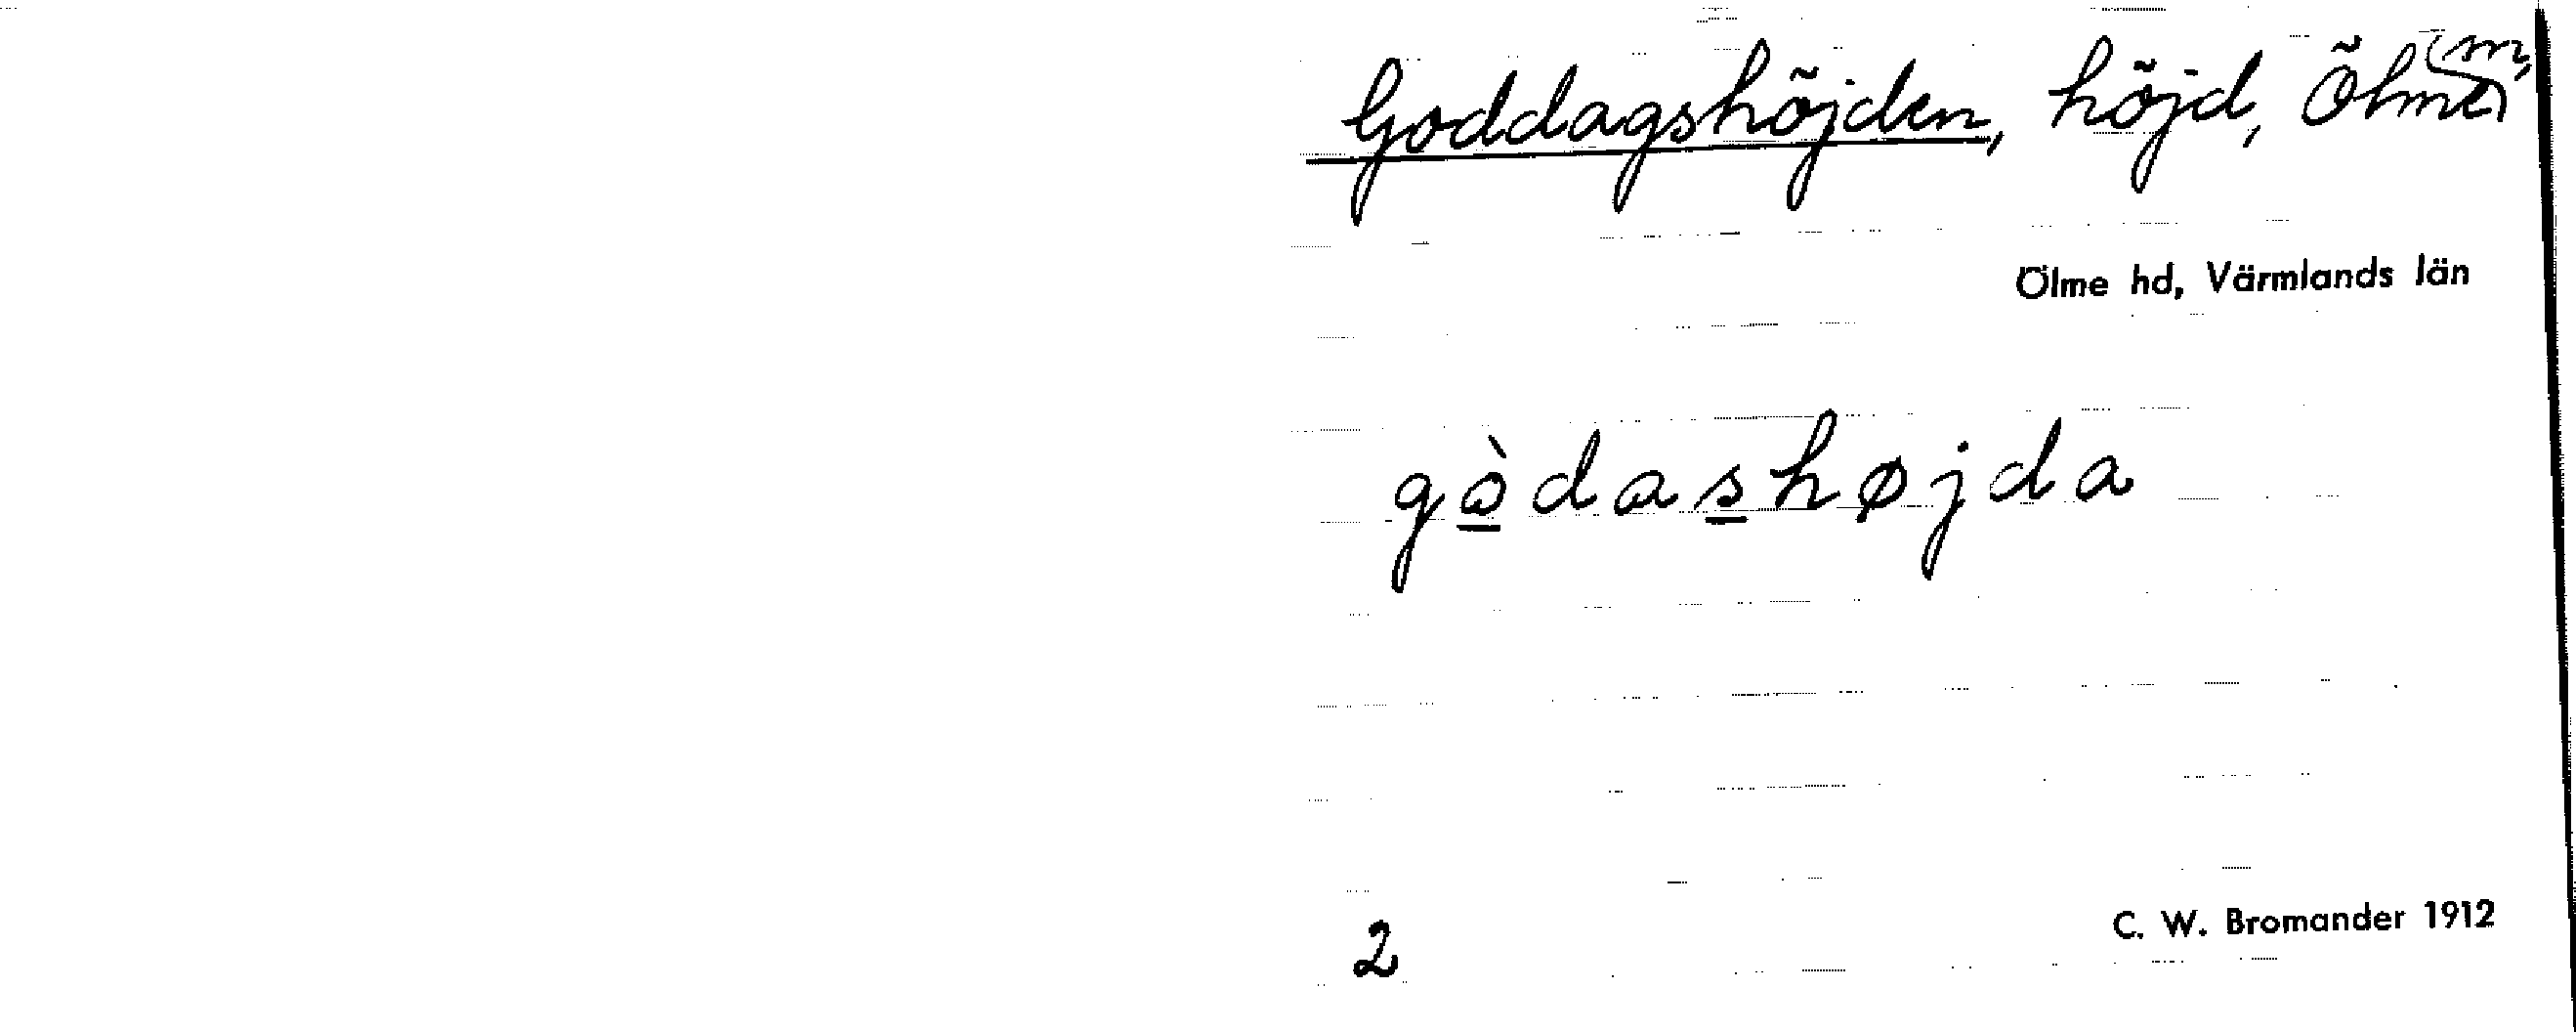 Goddagshöjden, höjd, Ölme sn,
Ölme hd, Värmlands län
gòdashøjda
2
C. W. Bromander 1912